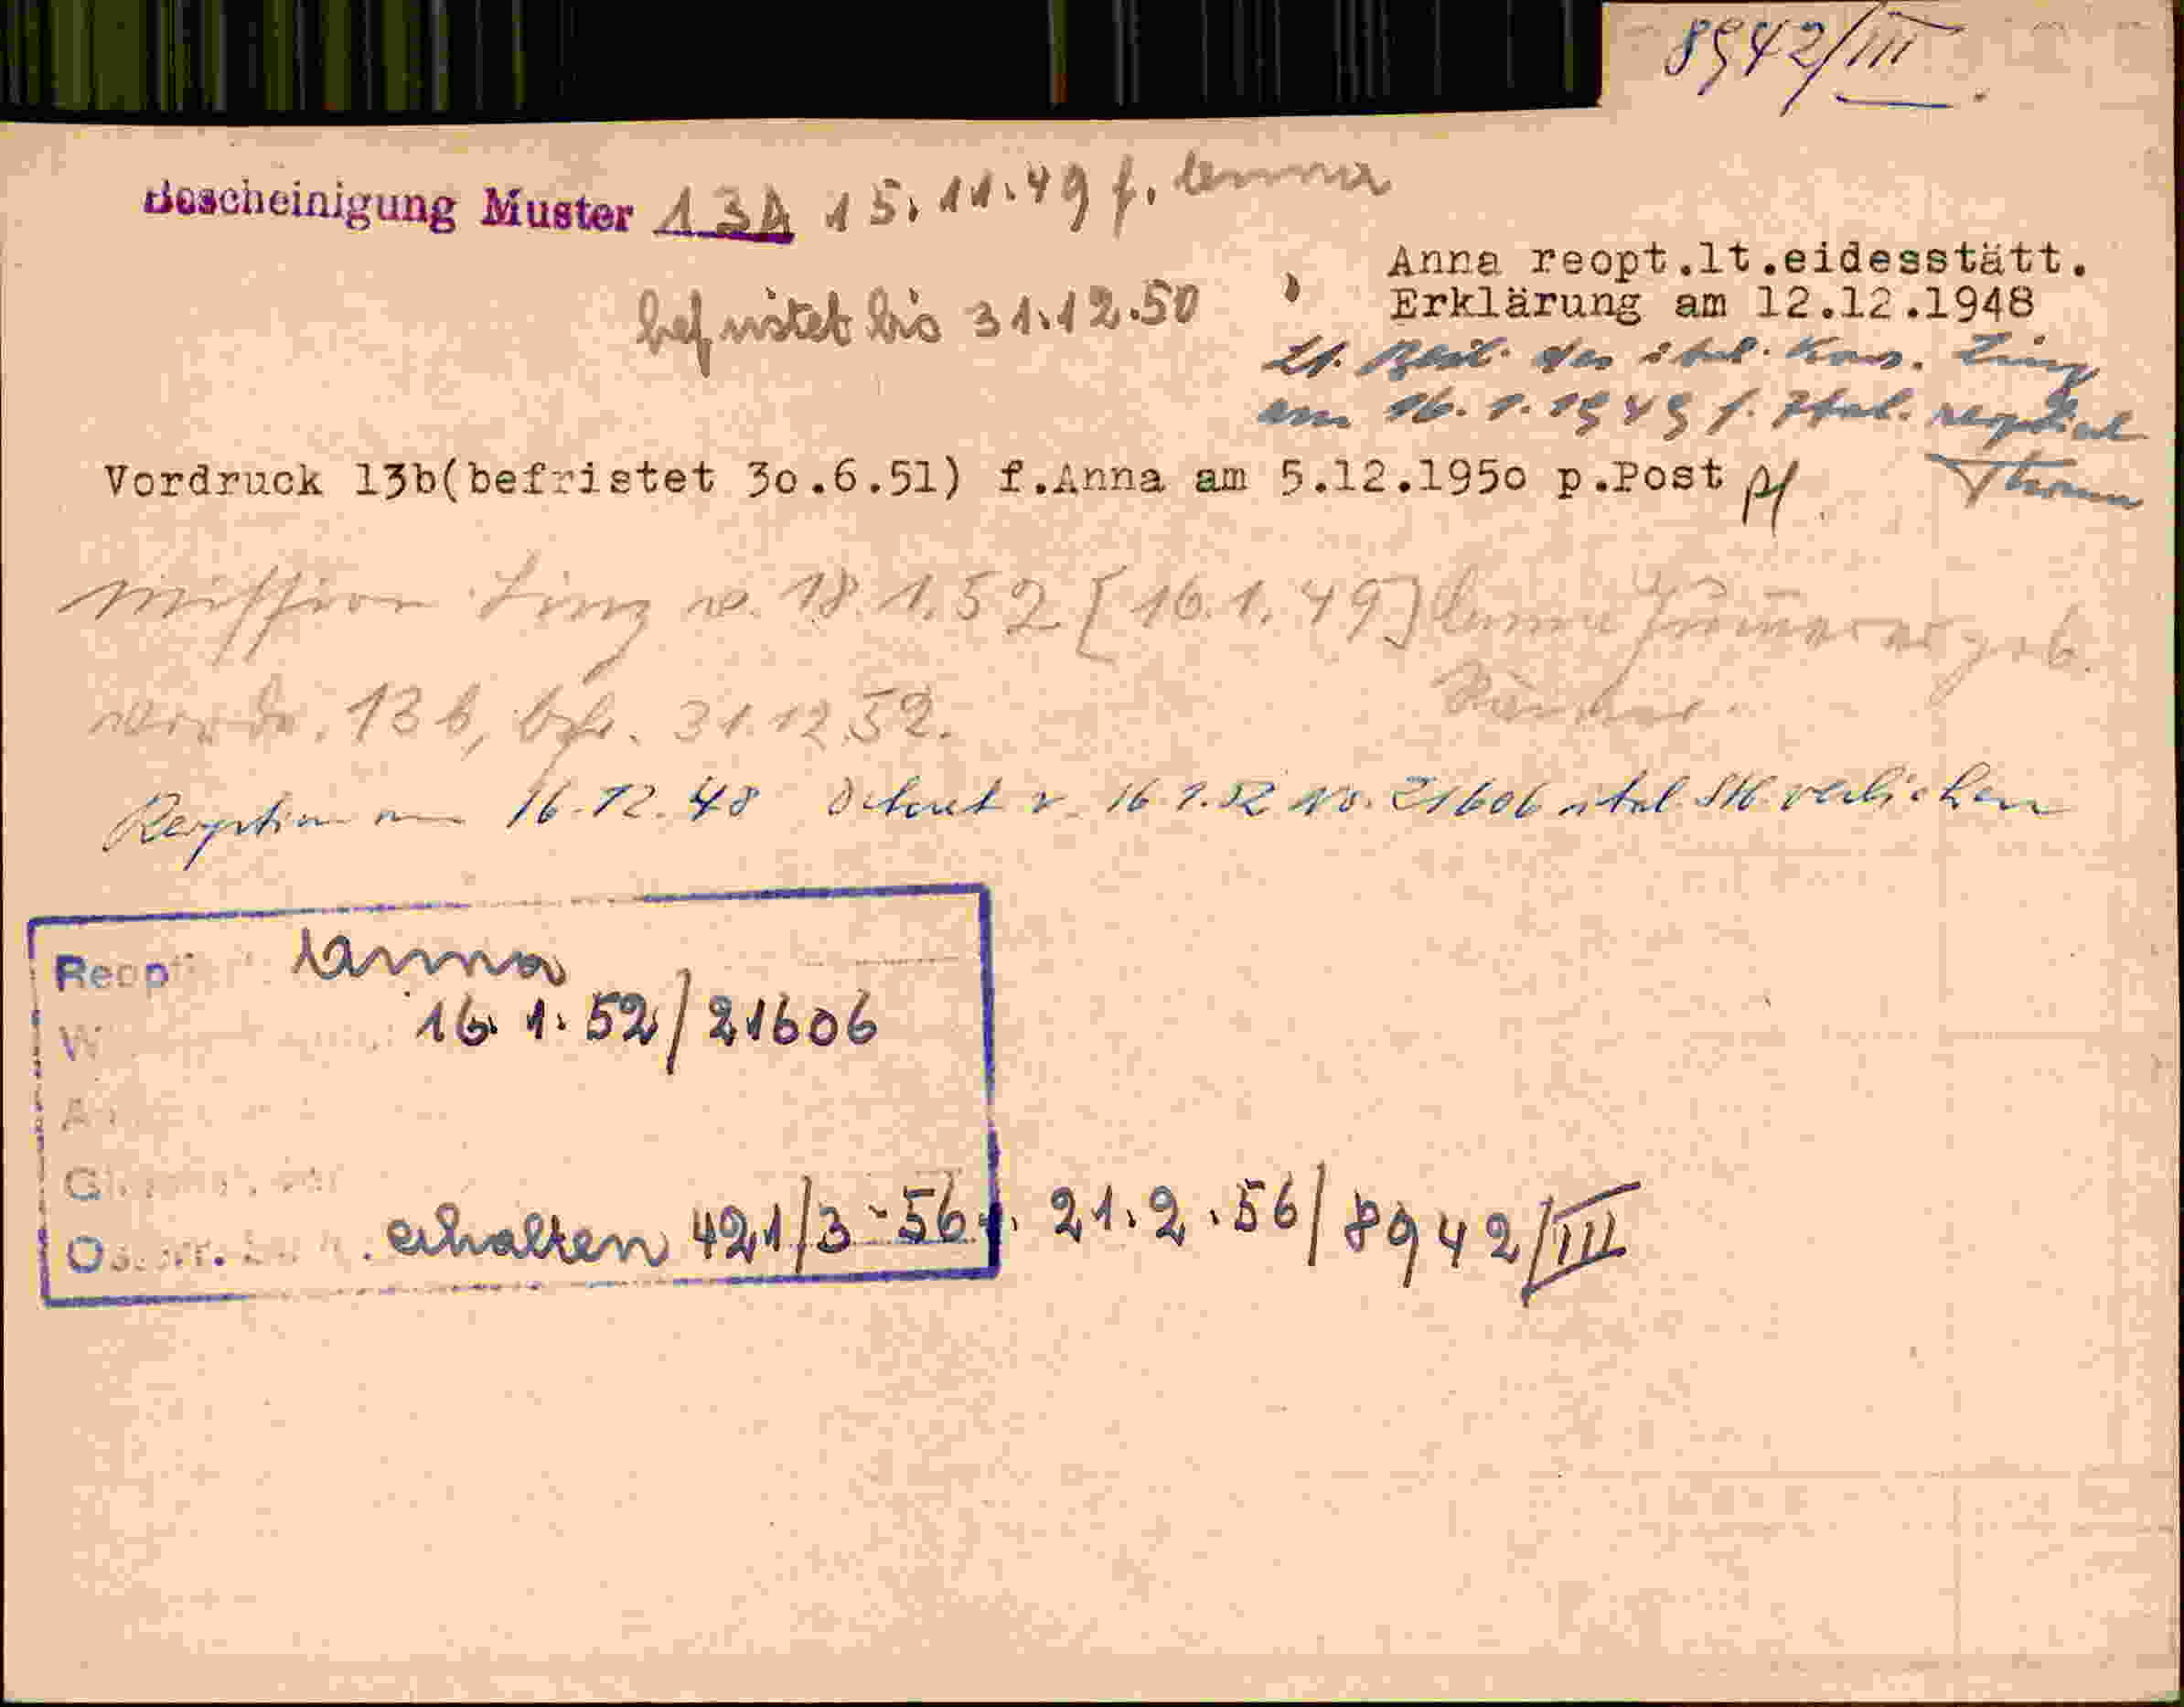 8942/III.
Bescheinigung Muster 13A 15.11.49 f. Anna
befristet bis 31.12.50
Anna reopt.lt.eidesstätt.
Erklärung am 12.12.1948
Lt. des ital. Kons. Linz
am 16.1.1949 f. Ital. reoptiert
Vordruck 13b(befristet 30.6.51) f.Anna am 5.12.1950 p.Post
Mission Linz v. 18.1.52 [16.1.49] Anna geb.
13b, bfr. 31.12.52.
Reoption am 16.12.48 Dekret v. 16.1.52 No. 21606 ital StB verliehen
Reopt Anna
16.1.52/21606
erhalten 421/3-56 v. 21.2.56/8942/III